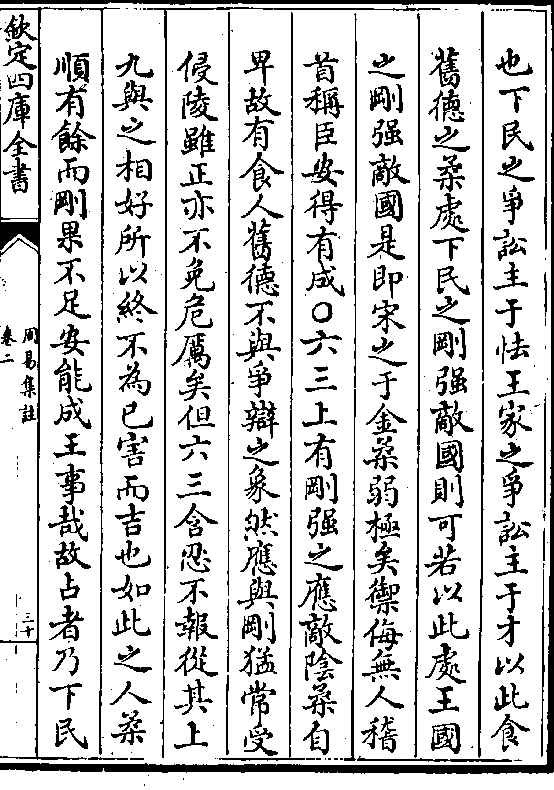 也下民之爭訟主于怯王家之爭訟主于才以此食
舊德之柔處下民之剛强敵國則可若以此處王國
之剛强敵國是即宋之于金柔弱極矣禦侮無人稽
首稱臣安得有成〇六三上有剛强之應敵陰柔自
卑故有食人舊德不與爭辯之象然應與剛猛常受
侵陵雖正亦不免危厲矣但六三含忍不報從其上
九與之相好所以終不為已害而吉也如此之人柔
順有餘而剛果不足安能成王事哉故占者乃下民
欽定四庫全書
周易集註
卷二
三十